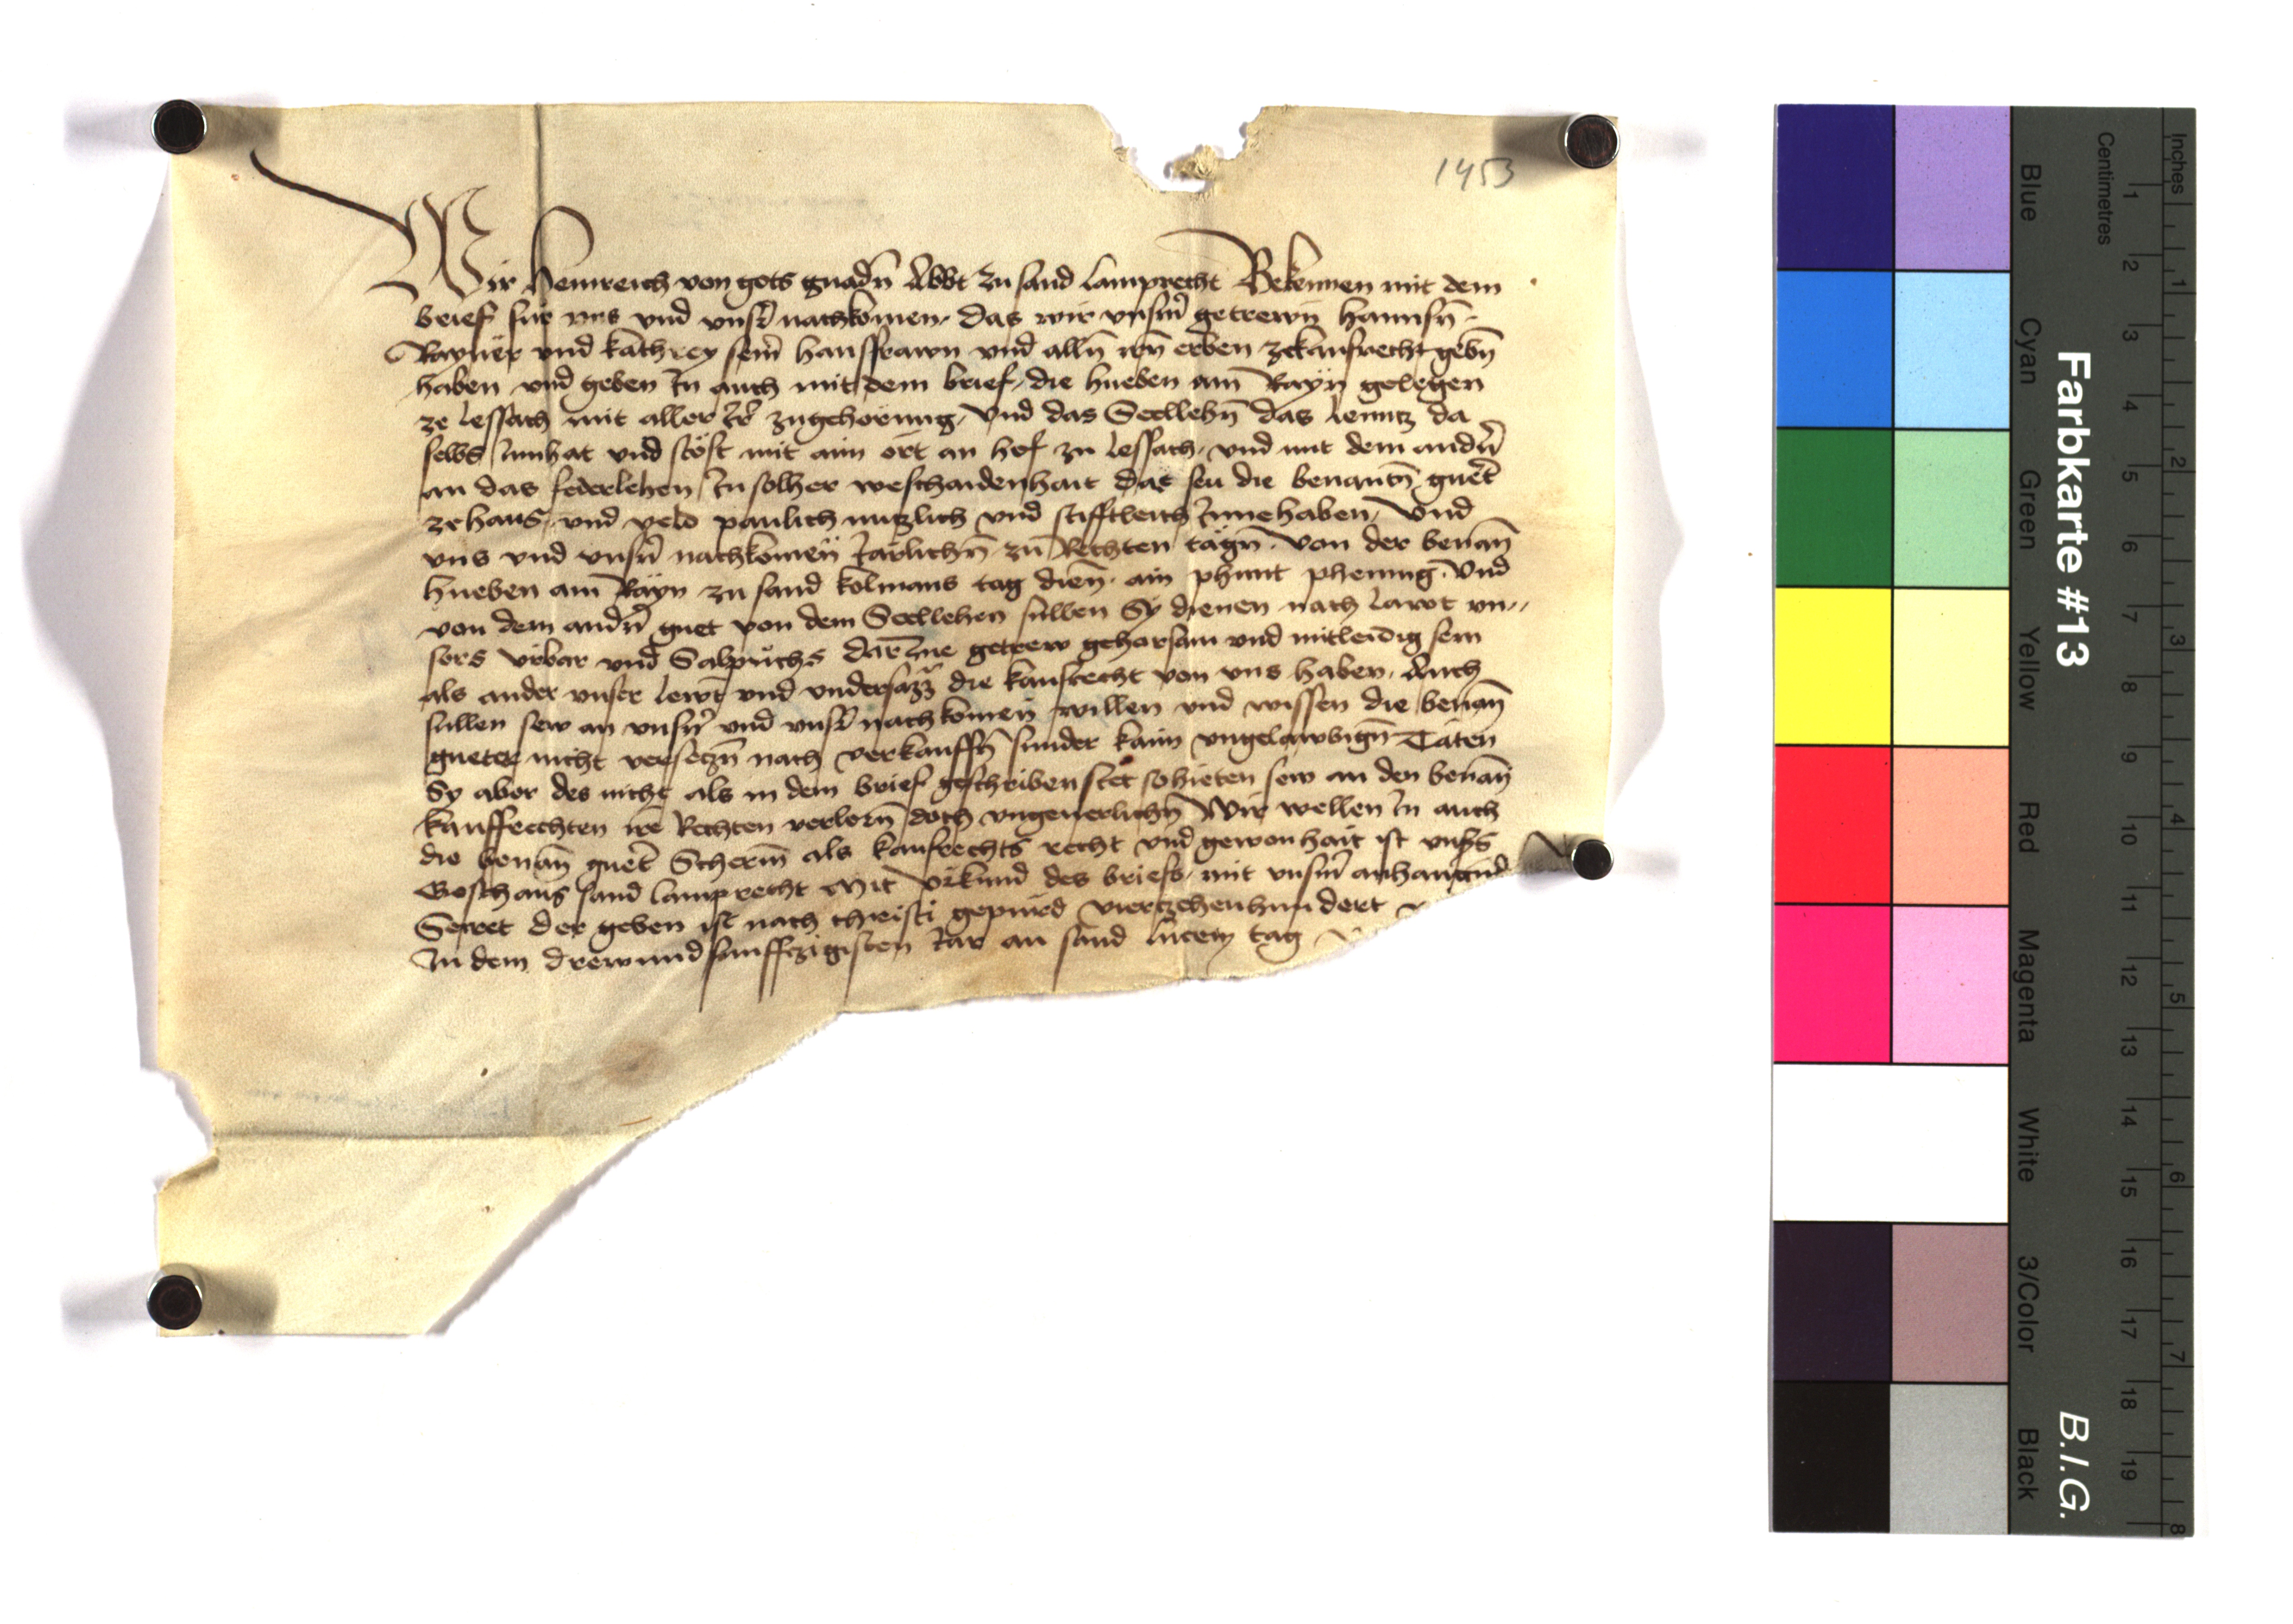 1453
Wir Heinreich von gots gnadn̄ Abbt zu sand Lamprecht Bekennen mit dem
brief für vns vnd vnsr̄ nachkomen, das wir vnsm̄ getrewn̈ hannsn̄
Raÿner vnd kathrey sein̄ hausfrawn vnd alln̄ irn̄ erben zekaufrecht gebn̄
haben vnd geben In auch mit dem brief, die hueben am̄ Raÿn gelegen
ze Lessach mit aller Ir̄ zugehorung, Vnd das Sedllehn̄ das Lenntz da
selbs Innhat vnd stöst mit aim ort an hof zu Lessach, vnd mit dem andn̄
an das federlehen In solher weschaidenhait das seu die benantn̄ guet̄
ze haus, vnd veld paulich nuczlich vnd stifftleich Inne haben, Vnd
vns vnd vnsn̄ nachkomen̈ Iärlichn̄ zu Rechten tägn̄. Von der benan̄
hueben am̄ Raÿn zu sand kolmans tag dien̄. ain phunt phening. Vnd
von dem andn̄ guet von dem Sedllehen sullen Sÿ dienen nach Lawt vn,,
sers vrbar vnd Salpuchs darInne getrew gehorsam vnd mitleidig sein
als ander vnser Lewt̄ vnd vndersazz̄ die kaufrecht von vns haben. Auch
sullen sew an vnsn̄ vnd vnsr̄ nachkomen̈ willen vnd wissen die benan̄
gueter nicht verseczn̄ nach verkauffn̄ sunder kaim vngelawbign̄ Täten
Sy aber des nicht als in dem brief geschriben stet so hieten sew an den benan̄
kauffrechten ire Rechten verlorn̄ doch vngeuerlichn̄ Wir wellen In auch
die benan̄ guet̄ Scherm̄ als kaufrechts recht vnd gewonhait ist vnsers
Goschaus sand Lamprecht Mit Vrkund des briefs, mit vnsm̄ anhangund̄
Secret der geben ist nach christi gepurd vierczehenhundert
In dem drewundfunffczigisten Iar an sand Lucein tag
Farbkarte #13
B.I.G.
Blue
Cyan
Green
Yellow
Red
Magenta
White
3/Color
Black
Centimetres
1 2 3 4 5 6 7 8 9 10 11 12 13 14 15 16 17 18 19
Inches
1 2 3 4 5 6 7 8